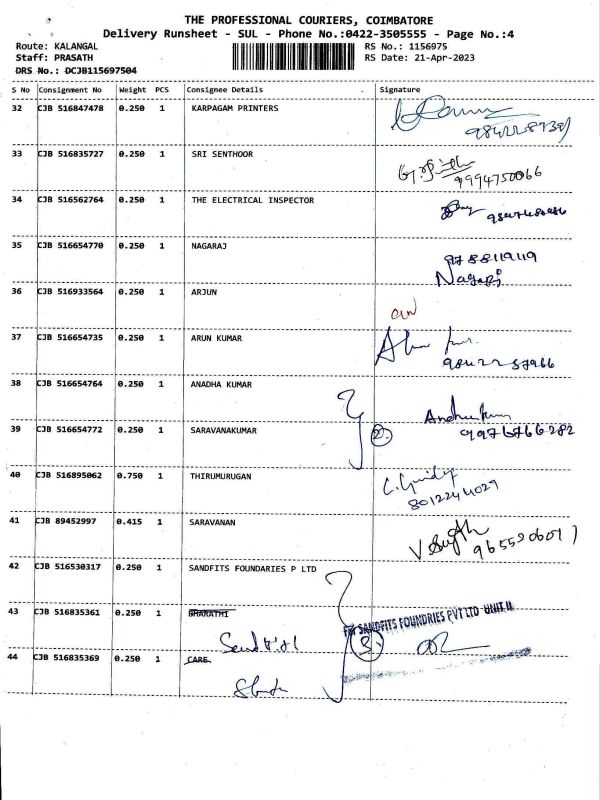 THE PROFESSIONAL COURIERS, COIMBATORE
Delivery Runsheet - SUL - Phone No.:0422-3505555 - Page No.:4
Route: KALANGAL RS No.: 1156975
Staff: PRASATH RS Date: 21-Apr-2023
DRS No.: DCJB115697504
S No Consignment No Weight PCS Consignee Details Signature
32 CJB 516847478 0.250 1 KARPAGAM PRINTERS
33 CJB 516835727 0.250 1 SRI SENTHOOR
9994750066
34 CJB 516562764 0.250 1 THE ELECTRICAL INSPECTOR
35 CJB 516654770 0.250 1 NAGARAJ
9788119119
Nagaraj
36 CJB 516933564 0.250 1 ARJUN
37 CJB 516654735 0.250 1 ARUN KUMAR
9842257966
38 CJB 516654764 0.250 1 ANADHA KUMAR
39 CJB 516654772 0.250 1 SARAVANAKUMAR
2
9976766282
40 CJB 516895062 0.750 1 THIRUMURUGAN
8012244029
41 CJB 89452997 0.415 1 SARAVANAN
42 CJB 516530317 0.250 1 SANDFITS FOUNDARIES P LTD
43 CJB 516835361 0.250 1 BHARATHI
For SANDFITS FOUNDRIES PVT LTD UNIT II
3
44 CJB 516835369 0.250 1 CARE